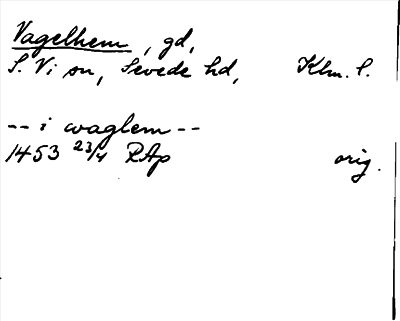 Vagelhem, gd,
S. Vi sn, Sevede hd, Klm. l.
-- i waglem --
1453 23/4 RAp orig.